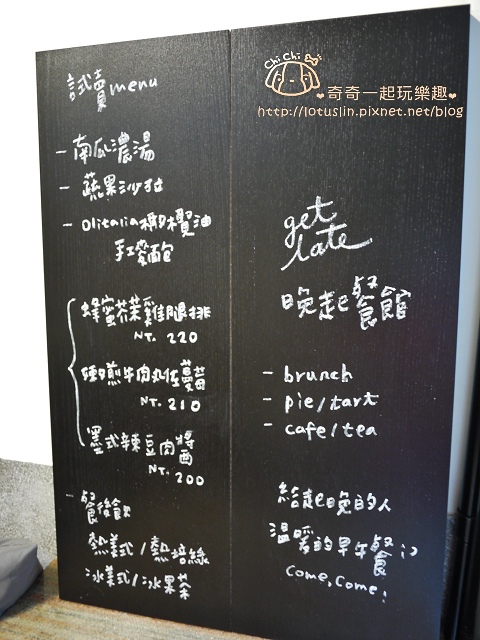 試賣menu
- 南瓜濃湯
- 蔬果沙拉
- Olitalia橄欖油
手工麵包
蜂蜜芥茉雞腿排
NT. 220
嫩煎牛肉丸佐蘑菇
NT. 210
墨式辣豆肉醬
NT. 200
- 餐後飲
熱美式/熱培絲
冰美式/冰果茶
ChiChi
❤奇奇一起玩樂趣❤
http://lotuslin.pixnet.net/blog
get
late
晚起餐館
- brunch
- pie/tart
- cafe/tea
給起晚的人
溫暖的早午餐
come,come!